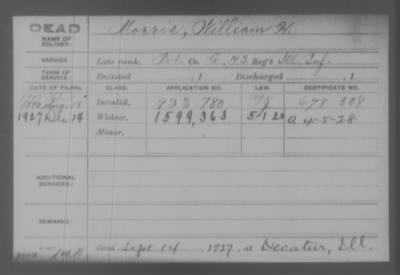 DEAD
NAME OF SOLDIER: Morris, William H.
SERVICE: Late rank, Pvt. Co. C, 43 Reg't Ill. Inf.
TERM OF SERVICE: Enlisted , 1 Discharged , 1
DATE OF FILING. CLASS. APPLICATION NO. LAW. CERTIFICATE NO.
1890 Aug. 18 Invalid, 933 780 678 508
1927 Dec 19 Widow, 1599,363 5/1 20 A 4-5-28
Minor,
ADDITIONAL SERVICES:
REMARKS:
Died Sept 14, 1927, at Decatur, Ill.